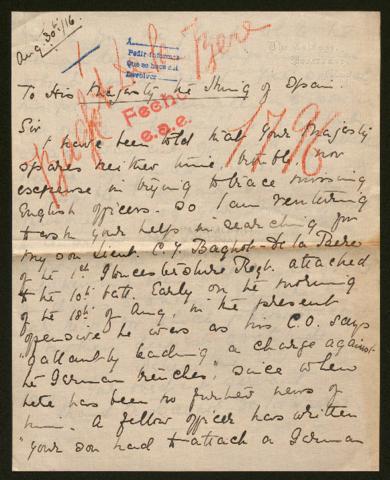 Aug. 30th/16.
A
Pedir informes
Que se hace así
Devolver
Baghot-de la Bere
To His Majesty the King of Spain.
Fecho
e.a.e.
1796
Sir
I have been told that Your Majesty
spares neither time, trouble, nor
expense in trying to trace missing
English officers. So I am venturing
to ask your help in searching for
my son Lieut. C. J. Baghot-De la Bere
of the 1st Gloucestershire Regt. attached
to the 10th batt. Early on the morning
of the 18th of Aug, in the present
offensive he was as his C.O. says
"gallantly leading a charge against
the German trenches", since when
there has been no further news of
him. A fellow officer has written
"Your son had to attack a German